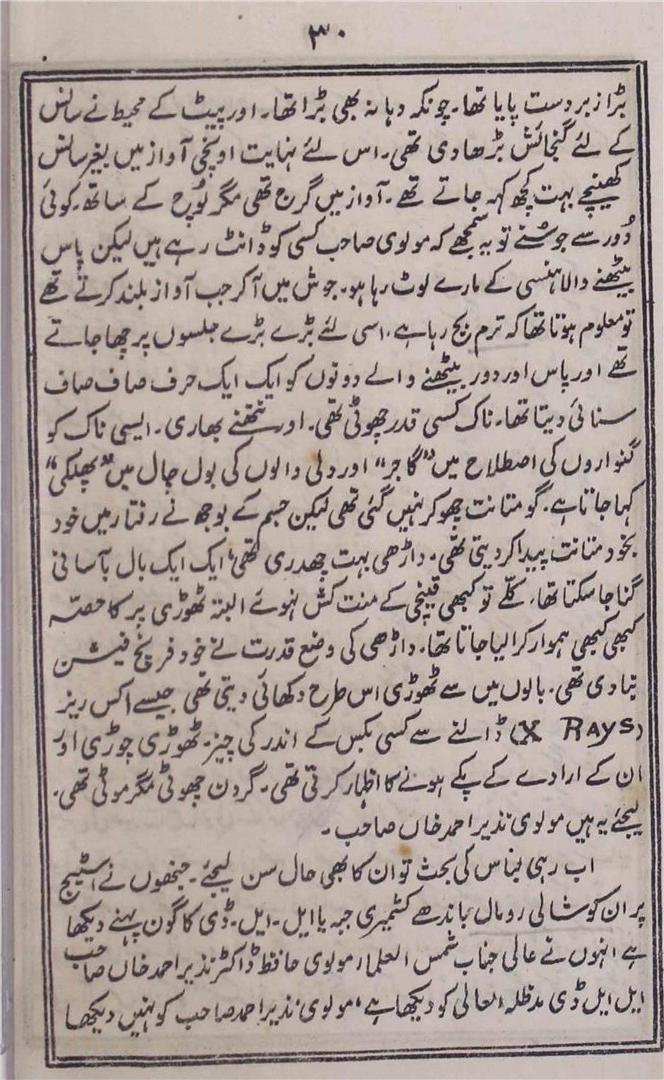 ۳۰
بڑا زبردست پایا تھا۔ چونکہ دہانہ بھی بڑا تھا۔ اور پیٹ کے محیط نے سانس
کے لئے گنجائش بڑھا دی تھی۔ اس لئے نہایت اونچی آواز میں بغیر سانس
کھینچے بہت کچھ کہہ جاتے تھے۔ آواز میں گرج تھی مگر لُوچ کے ساتھ۔ کوئی
دُور سے جو سُنے تو یہ سمجھے کہ مولوی صاحب کسی کو ڈانٹ رہے ہیں لیکن پاس
بیٹھنے والا ہنسی کے مارے لوٹ رہا ہو۔ جوش میں آکر جب آواز بلند کرتے تھے
تو معلوم ہوتا تھا کہ ترم بج رہا ہے۔ اسی لئے بڑے بڑے جلسوں پر چھا جاتے
تھے اور پاس اور دور بیٹھنے والے دونوں کو ایک ایک حرف صاف صاف
سنائی دیتا تھا۔ ناک کسی قدر چھوٹی تھی۔ اور نتھنے بھاری۔ ایسی ناک کو
گنواروں کی اصطلاح میں "گاجر" اور دلی والوں کی بول چال میں "پھلکی"
کہا جاتا ہے۔ گو متانت چھو کر نہیں گئی تھی لیکن جسم کے بوجھ نے رفتار میں خود
بخود متانت پیدا کر دیتی تھی۔ داڑھی بہت چھدری تھی، ایک ایک بال بآسانی
گنا جا سکتا تھا۔ کلّے تو کبھی قینچی کے منت کش نہوئے البتہ ٹھوڑی پر کا حصّہ
کبھی کبھی ہموار کرا لیا جاتا تھا۔ داڑھی کی وضع قدرت نے خود فریخ فیشن
بنا دی تھی۔ بالوں میں سے ٹھوڑی اس طرح دکھائی دیتی تھی جیسے اکس ریز
(X RAYS) ڈالنے سے کسی بکس کے اندر کی چیز۔ ٹھوڑی چوڑی اور
ان کے ارادے کے پکے ہونے کا اظہار کرتی تھی۔ گردن چھوٹی مگر موٹی تھی۔
لیجئے یہ ہیں مولوی نذیر احمد خاں صاحب۔
اب رہی لباس کی بحث تو ان کا بھی حال سن لیجئے۔ جنھوں نے اسٹیج
پر ان کو شالی رومال باندھے کشمیری جبہ یا ایل۔ ایل۔ ڈی کا گون پہنے دیکھا
ہے انہوں نے عالی جناب شمس العلما، مولوی حافظ ڈاکٹر نذیر احمد خاں صاحب
ایل ایل ڈی مدظلہ العالی کو دیکھا ہے، مولوی نذیر احمد صاحب کو نہیں دیکھا